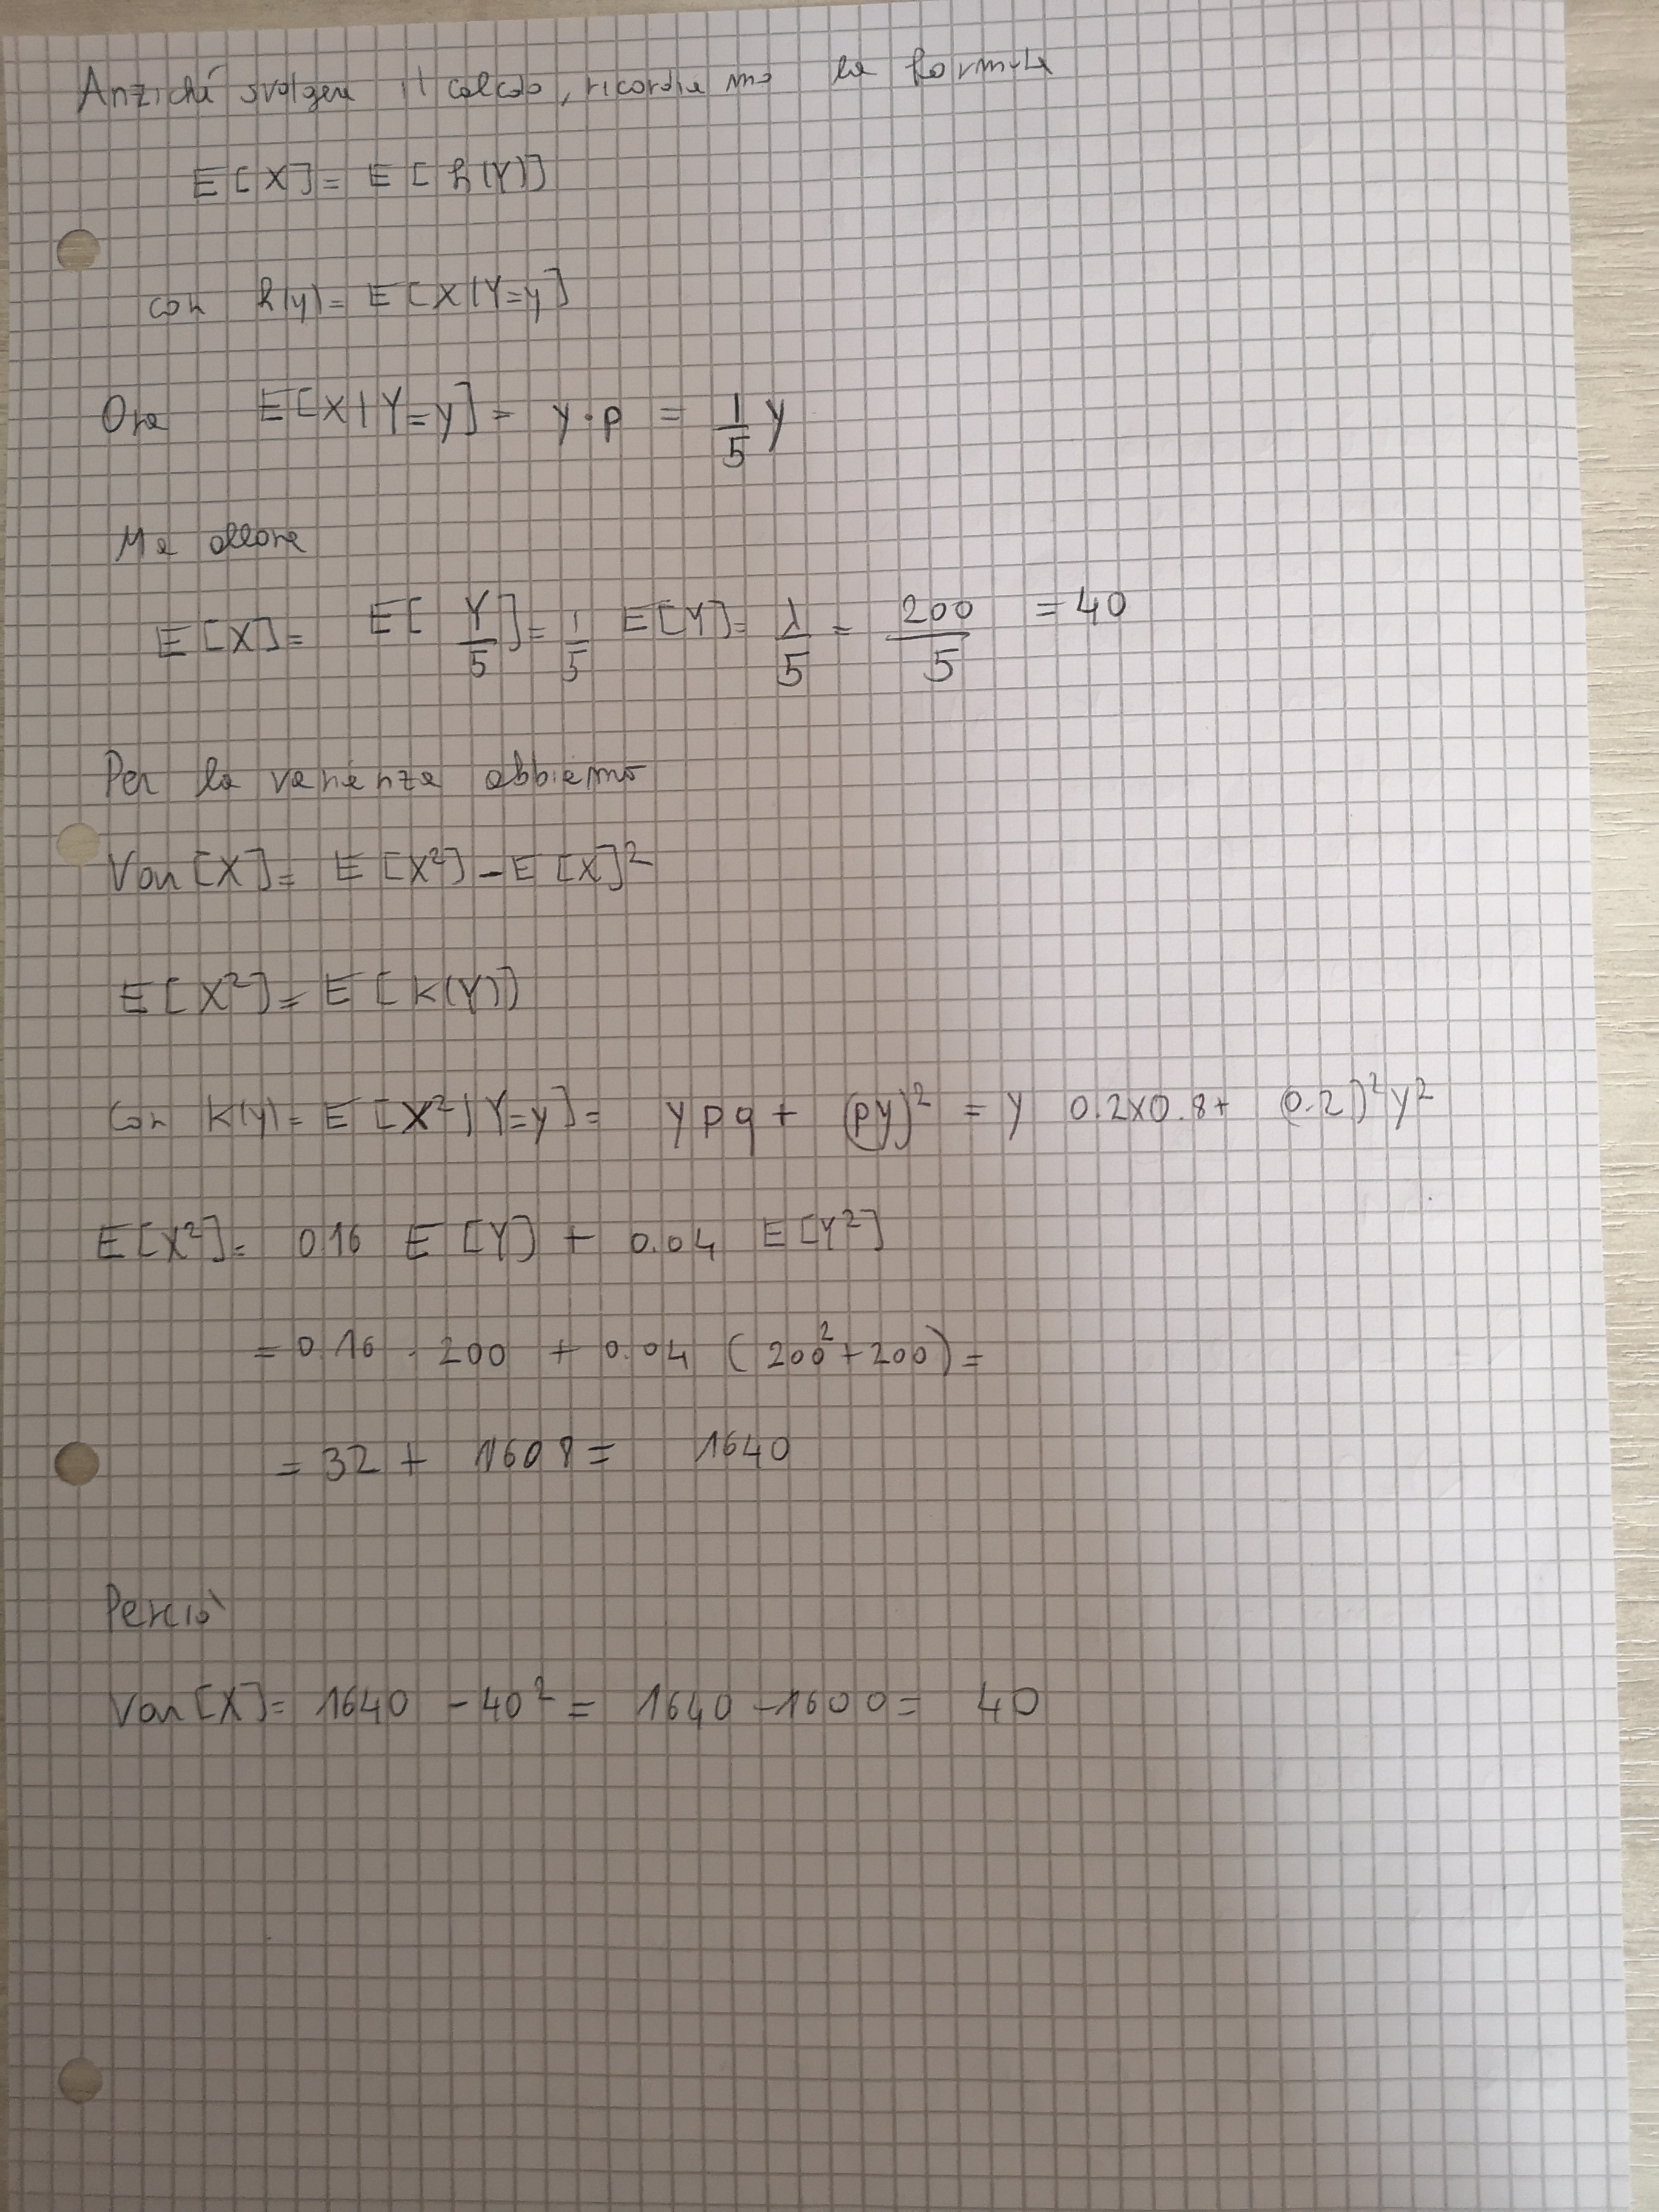 Anziché svolgere il calcolo, ricordiamo la formula
E[X] = E[h(Y)]
con h(y) = E[X|Y=y]
Ora E[X|Y=y] = y·p = 1/5 y
Ma allora
E[X] = E[Y/5] = 1/5 E[Y] = λ/5 = 200/5 = 40
Per la varianza abbiamo
Var[X] = E[X²] - E[X]²
E[X²] = E[k(Y)]
Con k(y) = E[X²|Y=y] = y p q + (py)² = y 0.2x0.8 + (0.2)² y²
E[X²] = 0.16 E[Y] + 0.04 E[Y²]
= 0.16 · 200 + 0.04 (200² + 200) =
= 32 + 1608 = 1640
Perciò
Var[X] = 1640 - 40² = 1640 - 1600 = 40